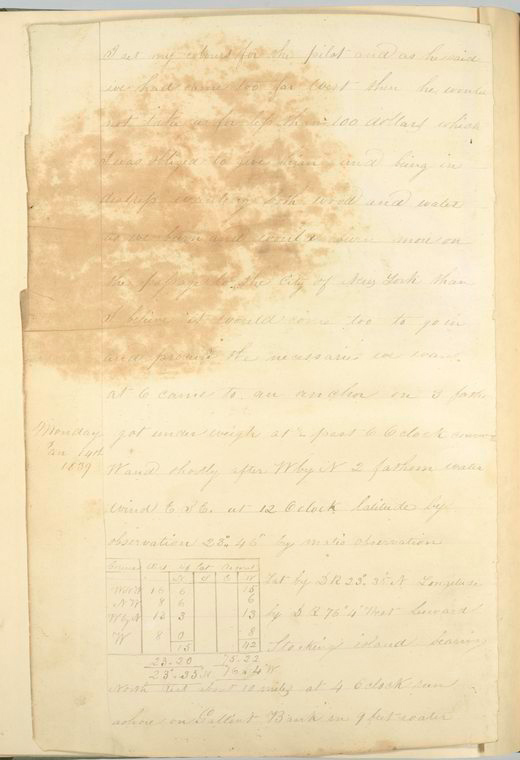 I set my colours for the pilot and as he said
we had came too far West then he would
not take us for up th 100 dollars which
I was obliged to give him and being in
distress wanting both wood and water
as we burn and would burn more on
the passage to the City of New York than
I believe it would come too to go in
and procure the necessaries we want
at 6 came to an anchor in 3 fath
Monday
Jan 14th
1839
got under weigh at ½ past 6 Oclock
W and shortly after W by N 2 fathom water
Wind E S E. at 12 Oclock latitude by
observation 23° 46' by observation
Course Dist Lat
N S E W
15
N W 8 6 6
W by N 13 3 13
W 8 0 8
15 42
23.20 75.22
23°.35 N 76.4 W
Lat by D R 23° 35 N Longitude
by D R 76° 4' West
Stocking island bearing
North West about 10 miles at 4 Oclock run
ashore on Gallent Bank in 9 feet water